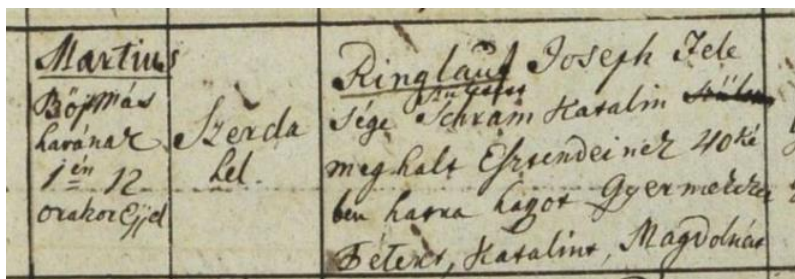 Martius
Böjtmás
havának
1én 12
orakor Ejjel
Szerda
hel
Ringlauf Joseph Fele
sége született Schram Katalin
meg halt Esztendeinek 40ke
ben hatra hagot Gyermekei
Petert, Katalint, Magdolnát